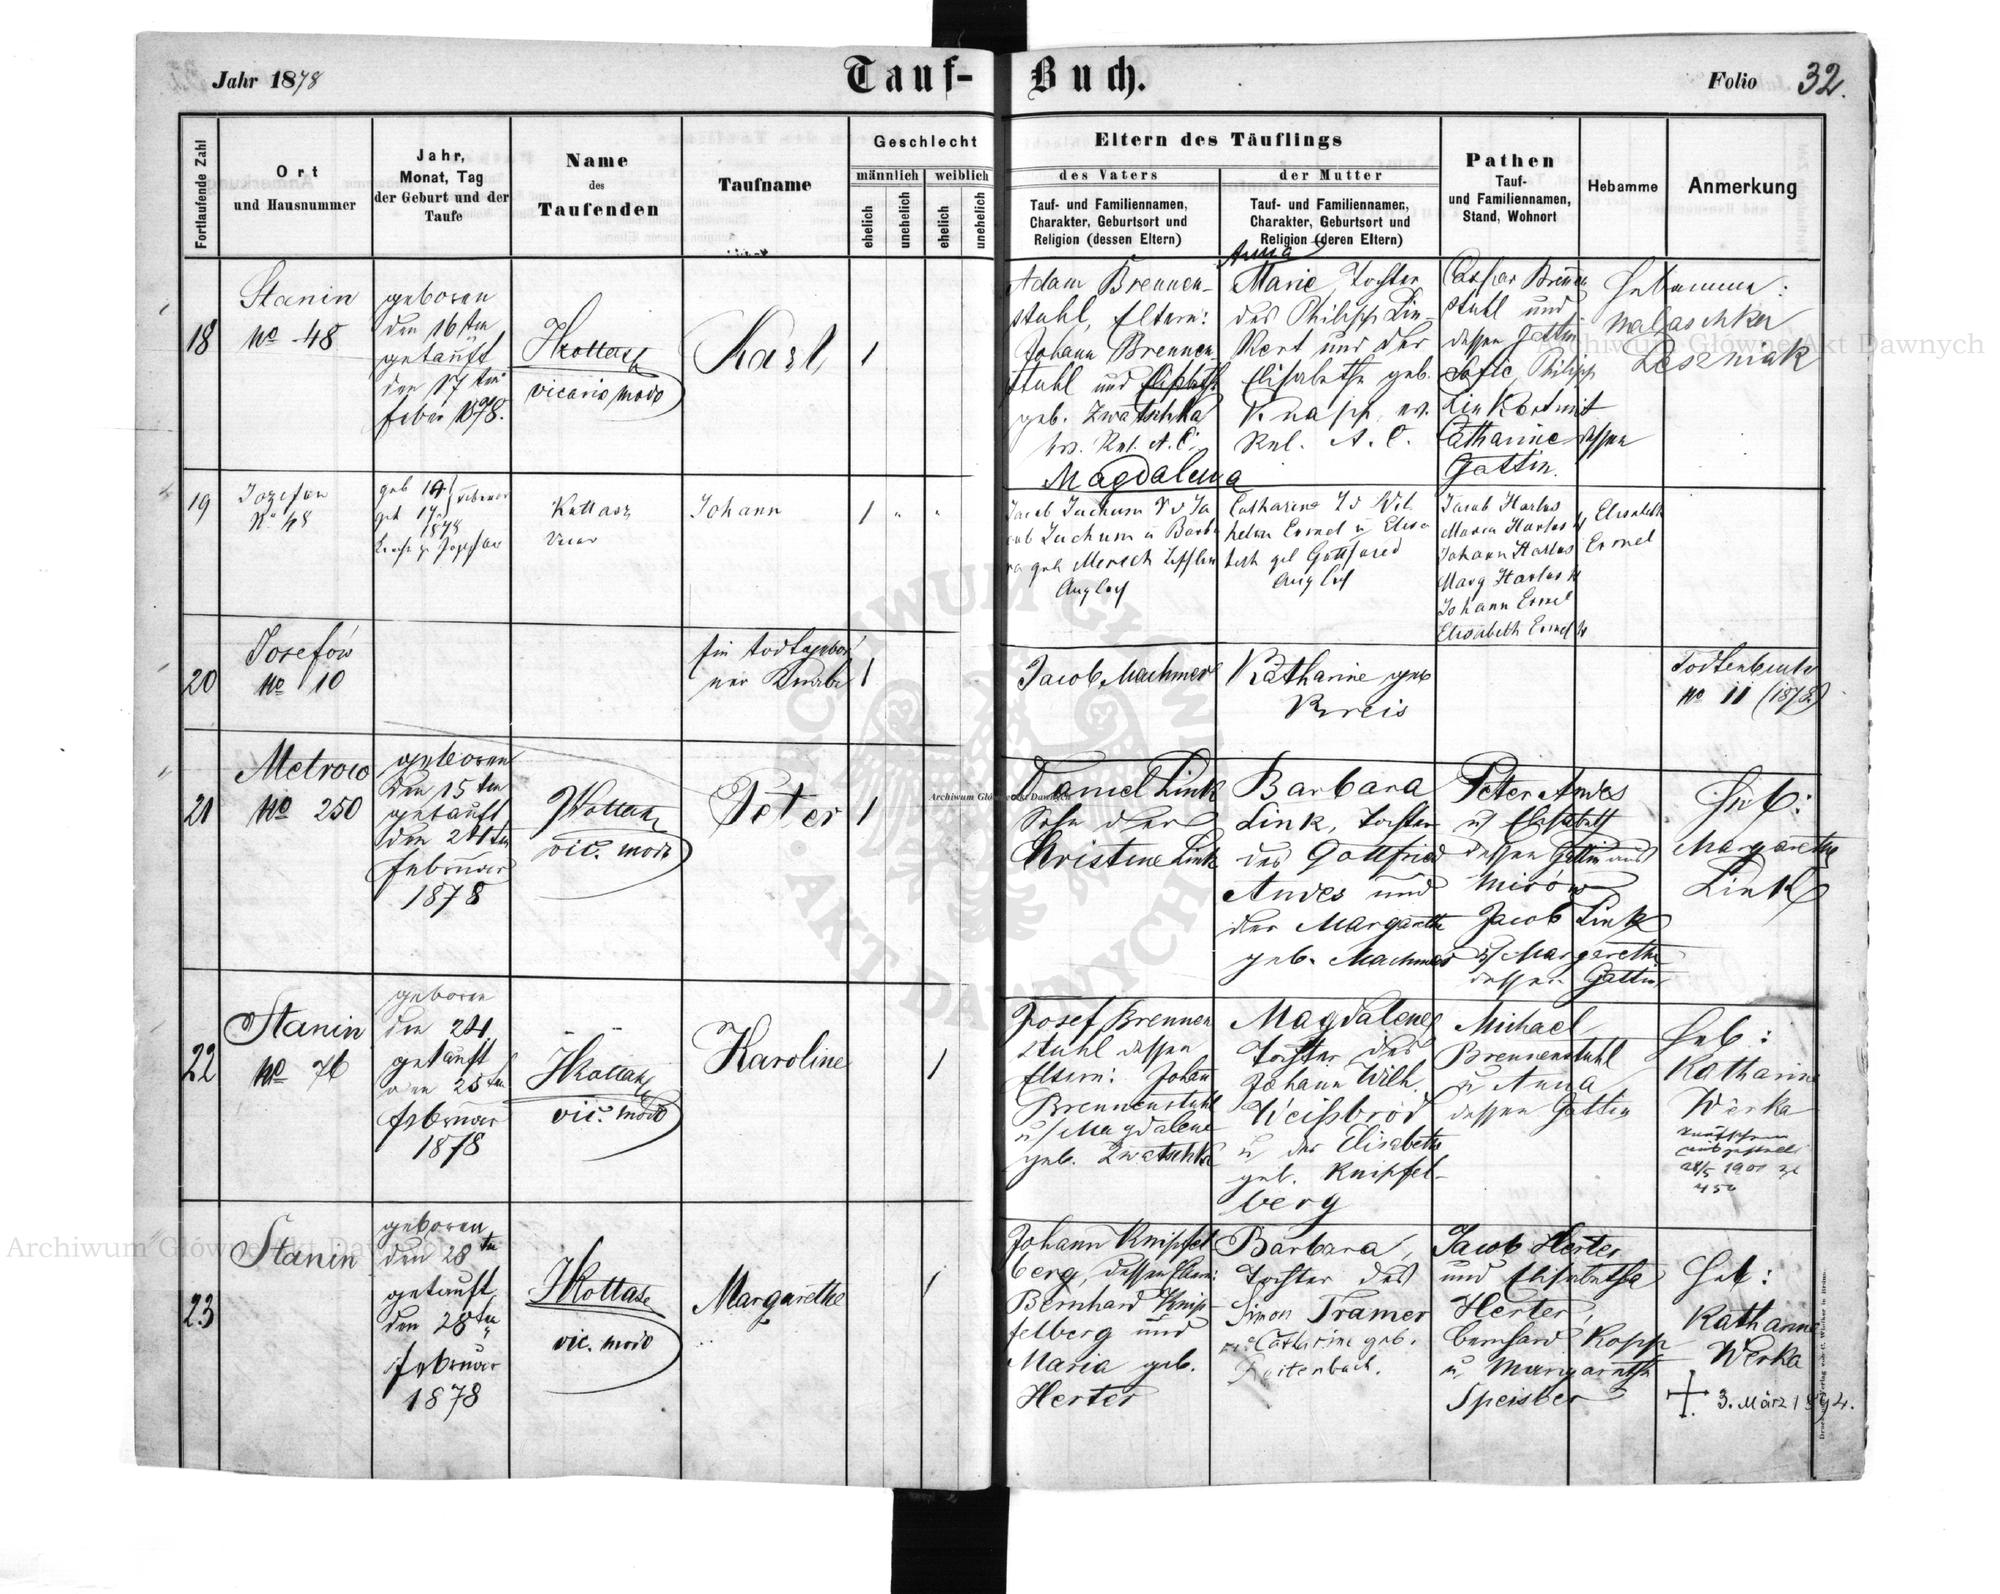 Jahr 1878
Tauf-Buch.
Folio 32.
Fortlaufende Zahl
Ort
und Hausnummer
Jahr,
Monat, Tag
der Geburt und der
Taufe
Name
des
Taufenden
Taufname
Geschlecht
männlich
weiblich
ehelich
unehelich
ehelich
unehelich
Eltern des Täuflings
des Vaters
der Mutter
Tauf- und Familiennamen,
Charakter, Geburtsort und
Religion (dessen Eltern)
Tauf- und Familiennamen,
Charakter, Geburtsort und
Religion (deren Eltern)
Pathen
Tauf-
und Familiennamen,
Stand, Wohnort
Hebamme
Anmerkung
18
Stanin
No 48
geboren
den 16ten
getauft
den 17ten
Feber 1878.
HKottasz
vicario modo
Karl
1
Adam Brennen-
stuhl, Eltern:
Johann Brennen-
stuhl und Elisabethe
geb. Zwatschka
ev. Rel. A. C.
Magdalena
Anna
Marie, Tochter
des Philipp Lin-
Kert und der
Elisabethe geb.
Knapp, ev.
Rel. A. C.
Caspar Brennen
stuhl und
dessen Gattin
Sofie, Philipp
Linkert mit
Catharine dessen
Gattin.
Hebamme:
Leszniak
19
Jozefow
No 48
geb 14
get 17
Februar
1878
Kottasz
Vicar
Johann
1 " "
Jacob Juchum S d Ja
cob Juchum u Barba
ra geb Mersch
Augbcf
Catharina T d Wil
helm Ermel u Elisa
beth geb Gottfried
Augbcf
Jacob Harlos
Maria Harlos
Johann Harlos
Marg Harlos
Johann Ermel
Elisabeth Ermel
Elisabeth
Ermel
20
Josefów
No 10
Ein todtgebor
ner Knabe
1
Jacob Machmer
Katharine geb
Kreis
Todtenbuch
No 11 (1878)
21
Metrow
No 250
geboren
den 15ten
getauft
den 24ten
Februar
1878
HKottasz
vic. modo
Peter
1
Daniel Link
Sohn der
Kristine Link
Barbara
Link, Tochter
des Gottfried
Andes und
der Margarethe
geb. Machmer
Peter Andes
u. Elisabeth
dessen Gattin aus
Mirów
Jacob Link
u. Margarethe
dessen Gattin
Heb:
Margarethe
Link
22
Stanin
No 76
geboren
den 24.
getauft
den 25ten
Februar
1878
HKottasz
vic. modo
Karoline
1
Josef Brennen
stuhl dessen
Eltern: Johan
Brennenstuhl
u. Magdalene
geb. Zwatschka
Magdalene
Tochter des
Johann Wilh.
Weißbrod
u. der Elisabethe
geb. Knipfel-
berg
Michael
Brennenstuhl
u. Anna
dessen Gattin
Heb:
Katharine
Werka
28/5 1901
450
23
Stanin
geboren
den 28ten
getauft
den 28ten
Februar
1878
HKottasz
vic. modo
Margarethe
1
Johann Knipfel
berg, dessen Eltern:
Bernhard Knip-
felberg und
Maria geb.
Herter
Barbara,
Tochter des
Simon Tramer
und Catharine geb.
Reitenbach.
Jacob Herter
und Elisabethe
Herter,
Bernhard Kopp
u. Margarethe
Speisber
Heb:
Katharine
Werka
3. März 1894.
Archiwum Główne Akt Dawnych
Archiwum Główne Akt Dawnych
Archiwum Główne Akt Dawnych
ARCHIWUM GŁÓWNE
AKT DAWNYCH